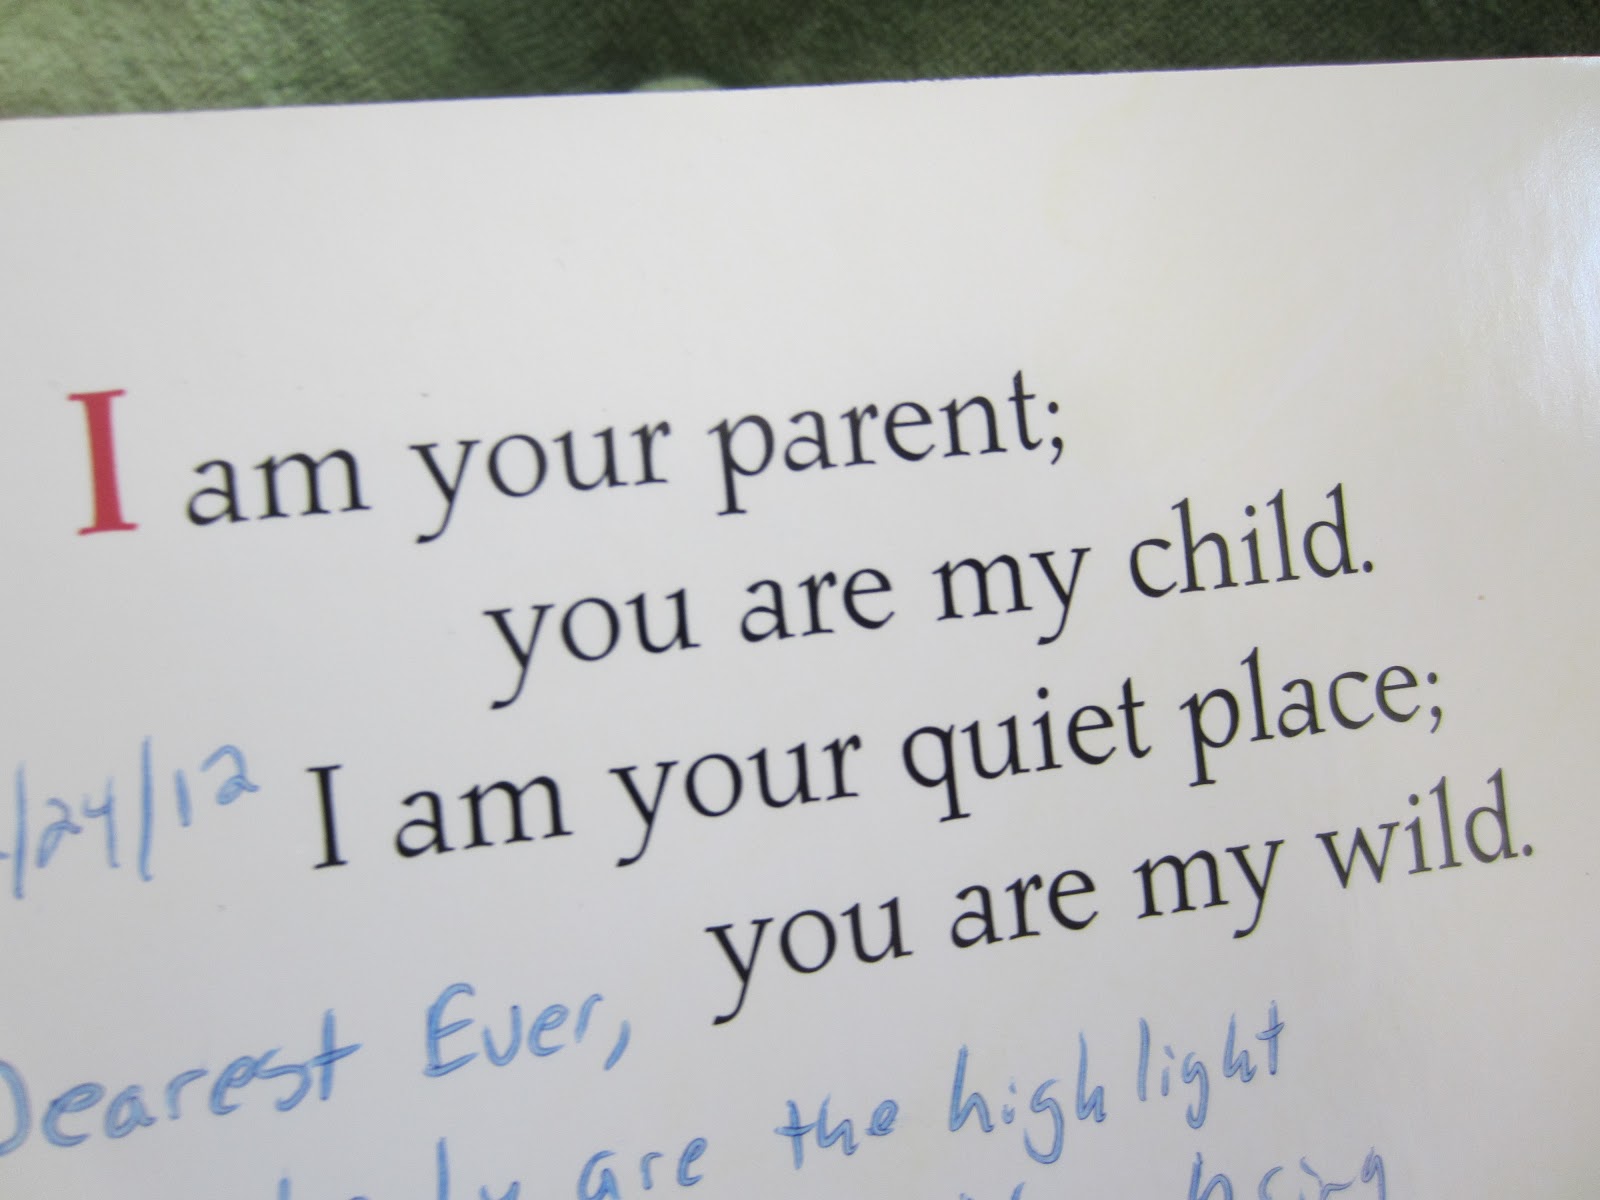 I am your parent;
you are my child.
I am your quiet place;
/24/12
you are my wild.
Dearest Ever,
are the highlight